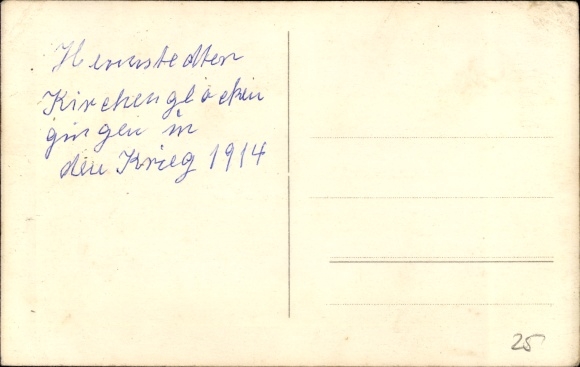 Hennstedten
Kirchenglocken
gingen in
den Krieg 1914
25